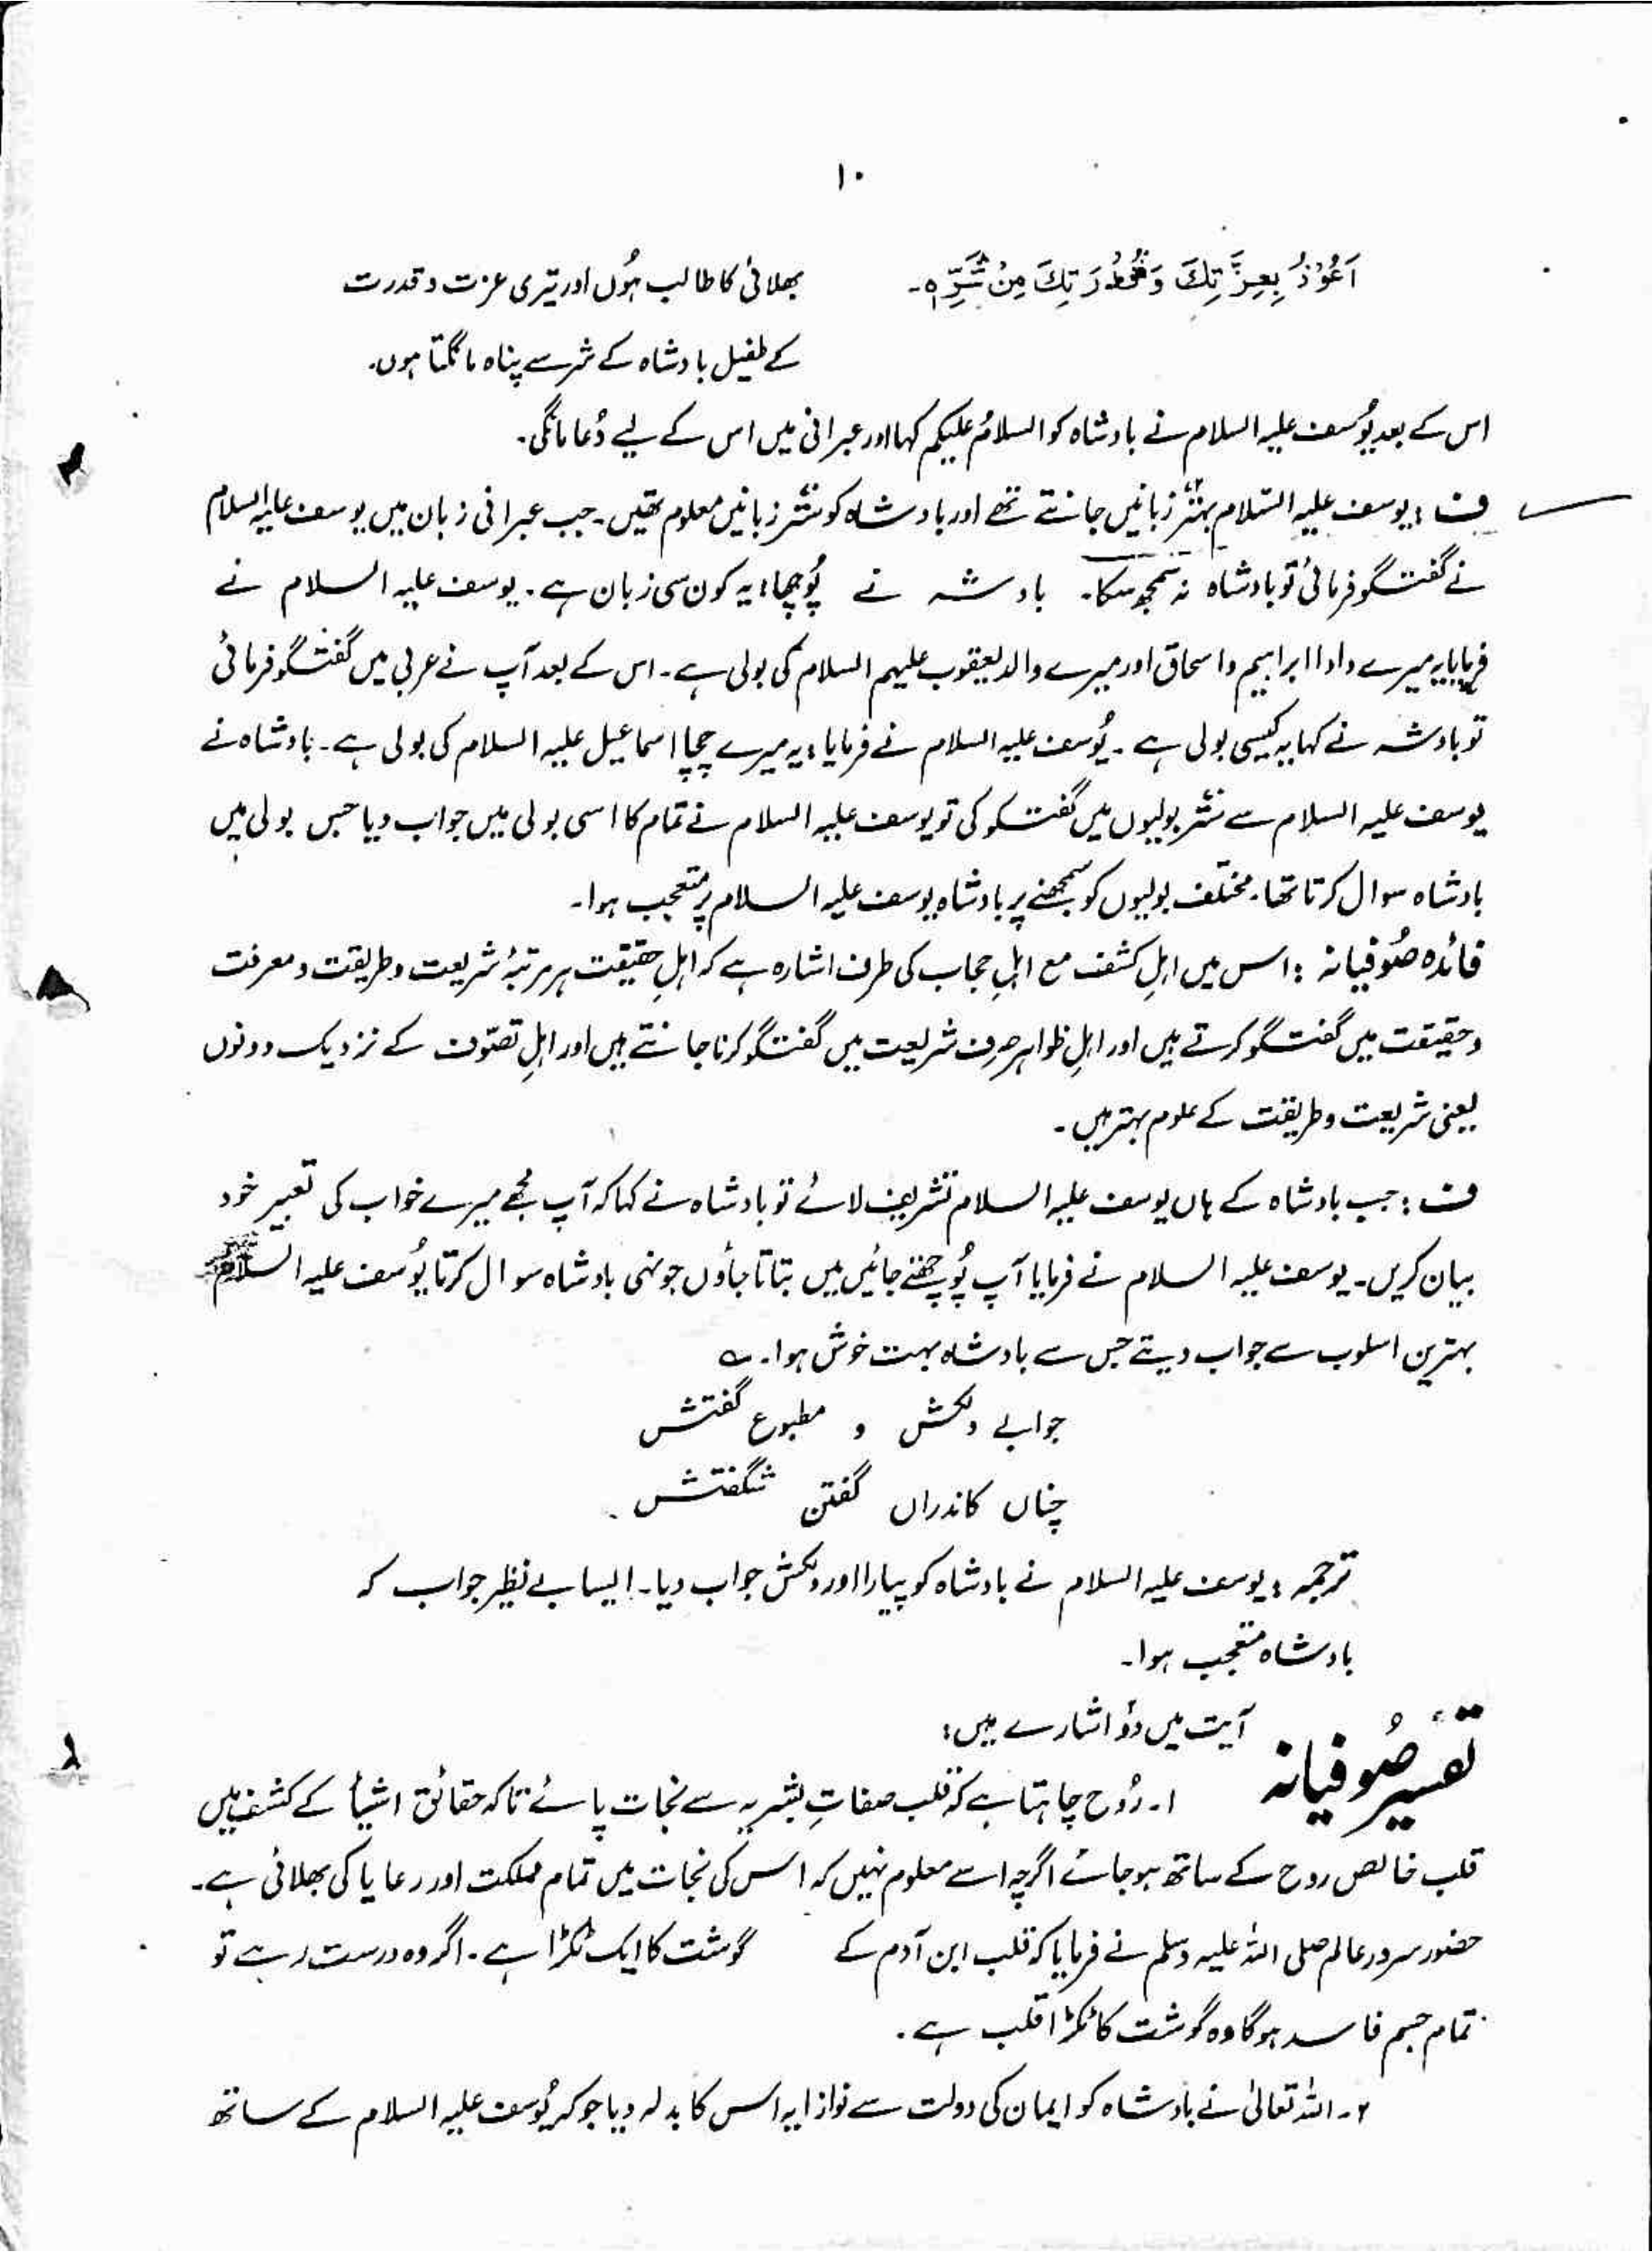 ۱۰
اَعُوْذُ بِعِزَّتِكَ وَقُدْرَتِكَ مِنْ شَرِّهٖ۔
بھلائی کا طالب ہُوں اور تیری عزت و قدرت
کے طفیل بادشاہ کے شر سے پناہ مانگتا ہوں۔
اس کے بعد یُوسف علیہ السلام نے بادشاہ کو السلامُ علیکم کہا اور عبرانی میں اس کے لیے دُعا مانگی۔
ف : یوسف علیہ السّلام بہتّر زبانیں جانتے تھے اور بادشاہ کو ستّر زبانیں معلوم تھیں۔ جب عبرانی زبان میں یوسف علیہ السلام
نے گفتگو فرمائی تو بادشاہ نہ سمجھ سکا۔ بادشہ نے پُوچھا : یہ کون سی زبان ہے۔ یوسف علیہ السلام نے
فرمایا یہ میرے دادا ابراہیم و اسحاق اور میرے والد یعقوب علیہم السلام کی بولی ہے۔ اس کے بعد آپ نے عربی میں گفتگو فرمائی
تو بادشہ نے کہا یہ کیسی بولی ہے۔ یُوسف علیہ السلام نے فرمایا : یہ میرے چچا اسماعیل علیہ السلام کی بولی ہے۔ بادشاہ نے
یوسف علیہ السلام سے ستّر بولیوں میں گفتگو کی تو یوسف علیہ السلام نے تمام کا اسی بولی میں جواب دیا جس بولی میں
بادشاہ سوال کرتا تھا۔ مختلف بولیوں کو سمجھنے پر بادشاہ یوسف علیہ السلام پر متعجب ہوا۔
فائدہ صُوفیانہ : اس میں اہلِ کشف مع اہلِ حجاب کی طرف اشارہ ہے کہ اہلِ حقیقت ہر مرتبۂ شریعت و طریقت و معرفت
و حقیقت میں گفتگو کرتے ہیں اور اہلِ ظواہر صرف شریعت میں گفتگو کرنا جانتے ہیں اور اہلِ تصوّف کے نزدیک دونوں
یعنی شریعت و طریقت کے علوم بہتر ہیں۔
ف : جب بادشاہ کے ہاں یوسف علیہ السلام تشریف لائے تو بادشاہ نے کہا کہ آپ مجھے میرے خواب کی تعبیر خود
بیان کریں۔ یوسف علیہ السلام نے فرمایا آپ پُوچھتے جائیں میں بتاتا جاؤں جونہی بادشاہ سوال کرتا یُوسف علیہ السلام
بہترین اسلوب سے جواب دیتے جس سے بادشاہ بہت خوش ہوا۔ ؎
جوابے دلکش و مطبوع گفتش
چناں کاندراں گفتن شگفتش
ترجمہ : یوسف علیہ السلام نے بادشاہ کو پیارا اور دلکش جواب دیا۔ ایسا بے نظیر جواب کہ
بادشاہ متعجب ہوا۔
تفسیر صُوفیانہ
آیت میں دوُ اشارے ہیں :
۱۔ رُوح چاہتا ہے کہ قلب صفاتِ بشریہ سے نجات پائے تاکہ حقائق اشیأ کے کشف میں
قلب خالص روح کے ساتھ ہو جائے اگرچہ اسے معلوم نہیں کہ اس کی نجات میں تمام مملکت اور رعایا کی بھلائی ہے۔
حضور سرور عالم صلی اللہ علیہ وسلم نے فرمایا کہ قلب ابن آدم کے گوشت کا ایک ٹکڑا ہے۔ اگر وہ درست رہے تو
تمام جسم فاسد ہوگا وہ گوشت کا ٹکڑا قلب ہے۔
۲۔ اللہ تعالیٰ نے بادشاہ کو ایمان کی دولت سے نوازا یہ اس کا بدلہ دیا جو کہ یُوسف علیہ السلام کے ساتھ